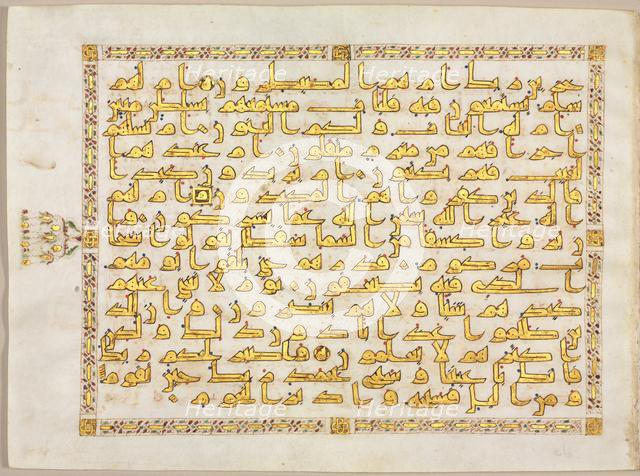 خزائن ربك ام هم المصيطرون ام لهم
سلم يستمعون فيه فليات مستمعهم بسلطن مبين
ام له البنت ولكم البنون ام تسلهم
اجرا فهم من مغرم مثقلون ام عندهم ا
لغيب فهم يكتبون ام يريدون كيدا فا
لذين كفروا هم المكيدون ام لهم
اله غير الله سبحن الله عما يشركون وا
ن يروا كسفا من السما ساقطا يقولوا سحا
ب مركوم فذرهم حتى يلقوا يومهم ا
لذي فيه يصعقون يوم لا يغني عنهم
كيدهم شيا ولا هم ينصرون وان للذ
ين ظلموا عذابا دون ذلك ولكن
اكثرهم لا يعلمون واصبر لحكم ربك
فانك باعيننا وسبح بحمد ربك حين تقوم
ومن اليل فسبحه وادبر النجوم
Heritage
Heritage
Heritage
Heritage
Heritage
Heritage